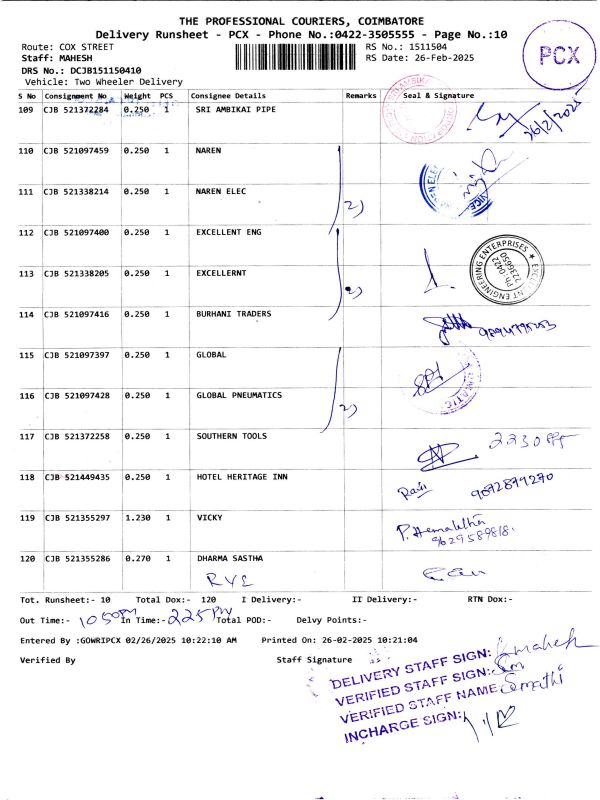 THE PROFESSIONAL COURIERS, COIMBATORE
Delivery Runsheet - PCX - Phone No.:0422-3505555 - Page No.:10
Route: COX STREET RS No.: 1511504
Staff: MAHESH RS Date: 26-Feb-2025
DRS No.: DCJB151150410
Vehicle: Two Wheeler Delivery
PCX
S No Consignment No Weight PCS Consignee Details Remarks Seal & Signature
109 CJB 521372284 0.250 1 SRI AMBIKAI PIPE 26/2/2025
110 CJB 521097459 0.250 1 NAREN
111 CJB 521338214 0.250 1 NAREN ELEC 2)
112 CJB 521097400 0.250 1 EXCELLENT ENG
EXCELLENT ENGINEERING ENTERPRISES ★ Ph: 0422 7236650
113 CJB 521338205 0.250 1 EXCELLERNT 2)
114 CJB 521097416 0.250 1 BURHANI TRADERS
115 CJB 521097397 0.250 1 GLOBAL
116 CJB 521097428 0.250 1 GLOBAL PNEUMATICS 2)
117 CJB 521372258 0.250 1 SOUTHERN TOOLS
118 CJB 521449435 0.250 1 HOTEL HERITAGE INN Ravi 9872879270
119 CJB 521355297 1.230 1 VICKY P. Hemalatha 9629589818.
120 CJB 521355286 0.270 1 DHARMA SASTHA
RVS
Tot. Runsheet:- 10 Total Dox:- 120 I Delivery:- II Delivery:- RTN Dox:-
Out Time:- 1050PM In Time:- 225PM Total POD:- Delvy Points:-
Entered By :GOWRIPCX 02/26/2025 10:22:10 AM Printed On: 26-02-2025 10:21:04
Verified By Staff Signature
DELIVERY STAFF SIGN: mahesh
VERIFIED STAFF SIGN: Sm
VERIFIED STAFF NAME Sumathi
INCHARGE SIGN: